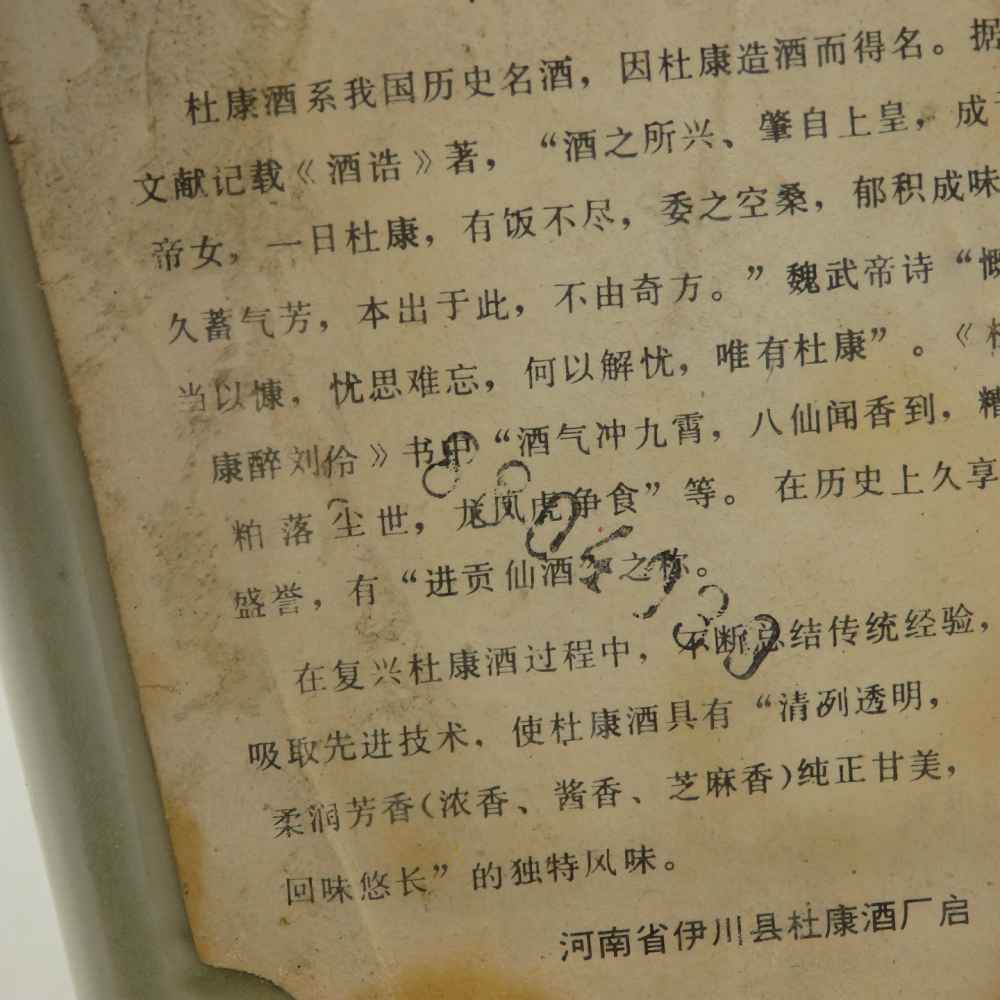 杜康酒系我国历史名酒，因杜康造酒而得名。据
文献记载《酒诰》著，“酒之所兴、肇自上皇，成
帝女，一日杜康，有饭不尽，委之空桑，郁积成味
久蓄气芳，本出于此，不由奇方。”魏武帝诗“慨
当以慷，忧思难忘，何以解忧，唯有杜康”。《杜
康醉刘伶》书中“酒气冲九霄，八仙闻香到，糟
粕落尘世，龙凤虎争食”等。在历史上久享
盛誉，有“进贡仙酒”之称。
在复兴杜康酒过程中，不断总结传统经验，
吸取先进技术，使杜康酒具有“清列透明，
柔润芳香(浓香、酱香、芝麻香)纯正甘美，
回味悠长”的独特风味。
河南省伊川县杜康酒厂启